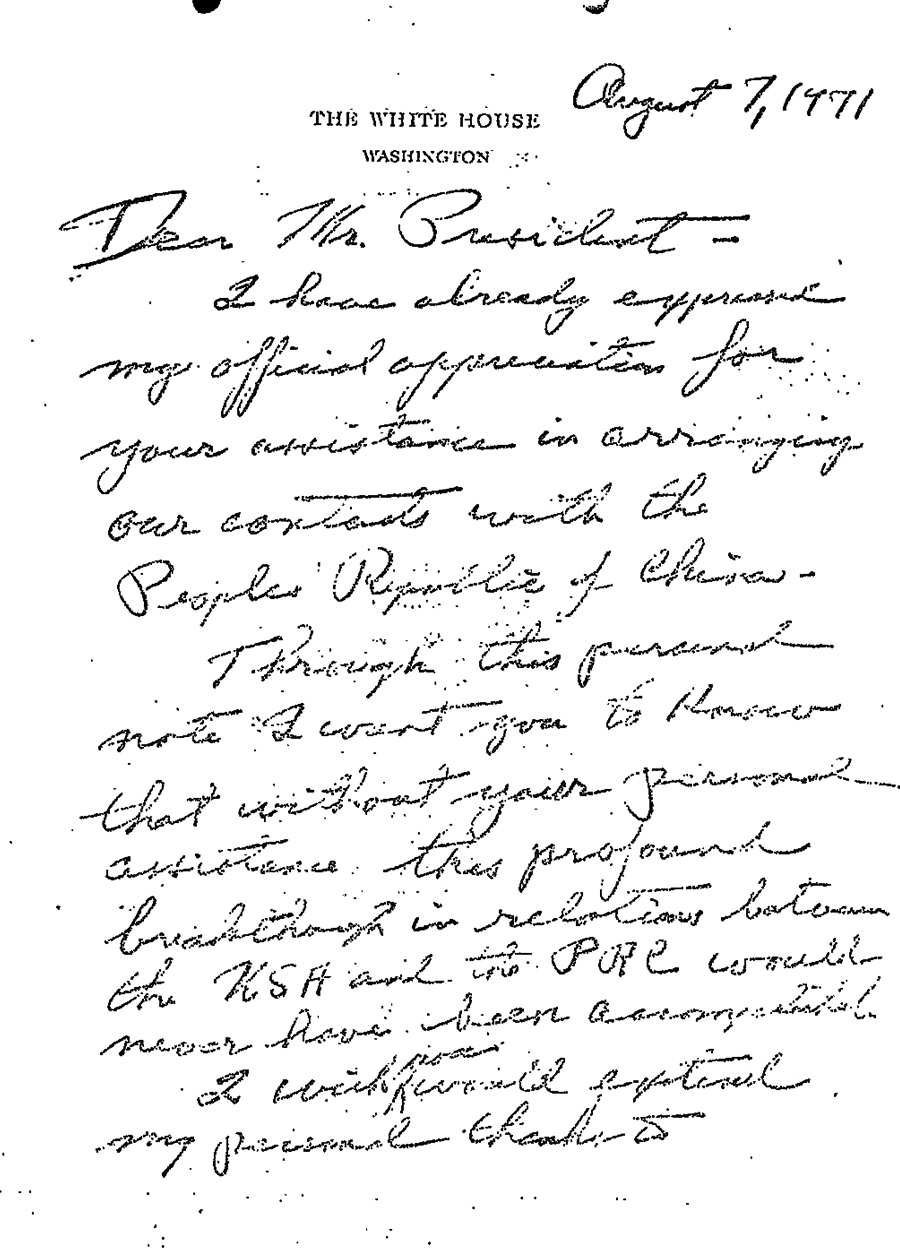 August 7, 1971
THE WHITE HOUSE
WASHINGTON
Dear Mr. President —
I have already expressed
my official appreciation for
your assistance in arranging
our contacts with the
Peoples Republic of China -
Through this personal
note I want you to know
that without your personal
assistance this profound
breakthough in relations between
the USA and the PRC would
never have been accomplished.
I wish you would extend
my personal thanks to